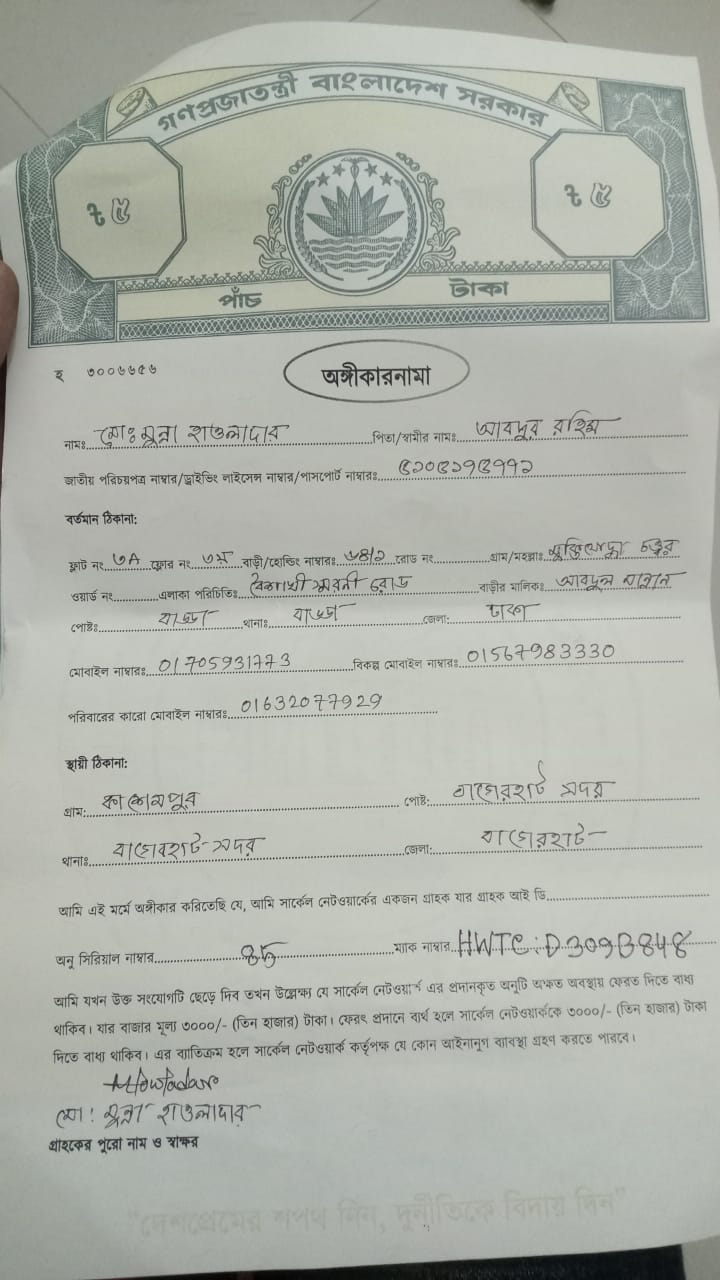 গণপ্রজাতন্ত্রী বাংলাদেশ সরকার
৳ ৫ ৳ ৫
পাঁচ টাকা
হ ৩০০৬৬৫৬
অঙ্গীকারনামা
নামঃ মোঃ মুন্না হাওলাদার পিতা/স্বামীর নামঃ আবদুর রহিম
জাতীয় পরিচয়পত্র নাম্বার/ড্রাইভিং লাইসেন্স নাম্বার/পাসপোর্ট নাম্বারঃ ৫১০৫১৭৫৭৭১
বর্তমান ঠিকানা:
ফ্লাট নং ৩A ফ্লোর নং ৩য় বাড়ী/হোল্ডিং নাম্বারঃ ৬৪/১ রোড নং গ্রাম/মহল্লাঃ মুক্তিযোদ্ধা চত্ত্বর
ওয়ার্ড নং এলাকা পরিচিতিঃ বৈশাখী স্মরনী রোড বাড়ীর মালিকঃ আবদুল মান্নান
পোষ্টঃ বাড্ডা থানাঃ বাড্ডা জেলা: ঢাকা
মোবাইল নাম্বারঃ 01705931773 বিকল্প মোবাইল নাম্বারঃ 01567983330
পরিবারের কারো মোবাইল নাম্বারঃ 01632077929
স্থায়ী ঠিকানা:
গ্রাম: কাশেমপুর পোষ্ট: বাগেরহাট সদর
থানাঃ বাগেরহাট সদর জেলা: বাগেরহাট
আমি এই মর্মে অঙ্গীকার করিতেছি যে, আমি সার্কেল নেটওয়ার্কের একজন গ্রাহক যার গ্রাহক আই ডি
অনু সিরিয়াল নাম্বার ম্যাক নাম্বার HWTC: D3093848
আমি যখন উক্ত সংযোগটি ছেড়ে দিব তখন উল্লেক্ষ্য যে সার্কেল নেটওয়ার্ক এর প্রদানকৃত অনুটি অক্ষত অবস্থায় ফেরত দিতে বাধ্য
থাকিব। যার বাজার মূল্য ৩০০০/- (তিন হাজার) টাকা। ফেরৎ প্রদানে ব্যর্থ হলে সার্কেল নেটওয়ার্ককে ৩০০০/- (তিন হাজার) টাকা
দিতে বাধ্য থাকিব। এর ব্যতিক্রম হলে সার্কেল নেটওয়ার্ক কর্তৃপক্ষ যে কোন আইনানুগ ব্যাবস্থা গ্রহণ করতে পারবে।
মো: মুন্না হাওলাদার
গ্রাহকের পুরো নাম ও স্বাক্ষর
"দেশপ্রেমের শপথ নিন, দুর্নীতিকে বিদায় দিন"